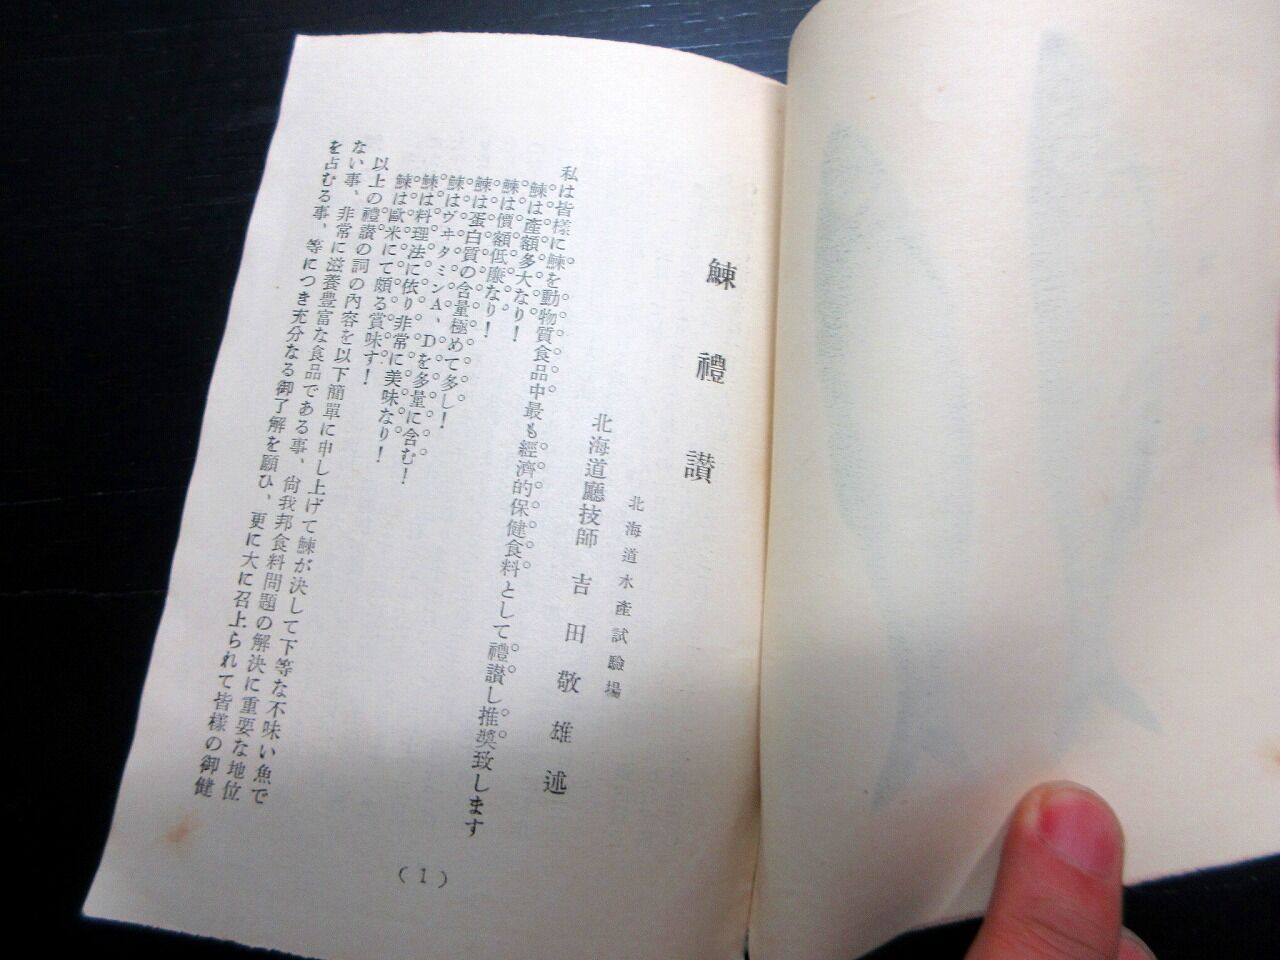 鰊禮讃
北海道水産試驗場
北海道廳技師 吉田敬雄述
私は皆樣に鰊を動物質食品中最も經濟的保健食料として禮讃し推奬致します
鰊は產額多大なり!
鰊は價額低廉なり!
鰊は蛋白質の含量極めて多し!
鰊はヴヰタミンA、Dを多量に含む!
鰊は料理法に依り非常に美味なり!
鰊は歐米にて頗る賞味す!
以上の禮讃の詞の内容を以下簡單に申し上げて鰊が決して下等な不味い魚で
ない事、非常に滋養豊富な食品である事、尙我邦食料問題の解決に重要な地位
を占むる事、等につき充分なる御了解を願ひ、更に大に召上られて皆樣の御健
(1)